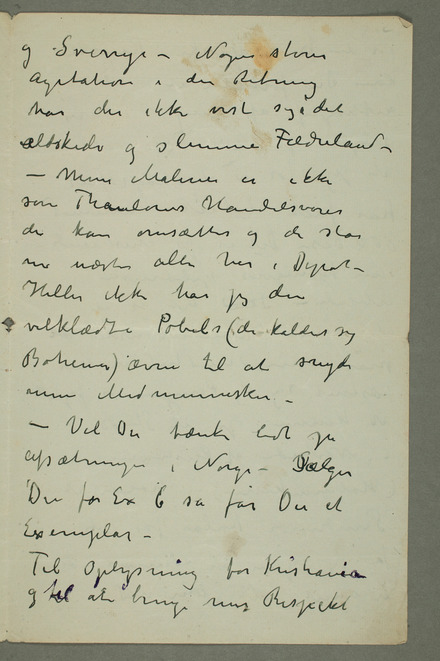 og Sverrige – Nogen større
Agitation i den Retning
har der ikke vist sig i det
elskede og slemme Fædreland –
– Mine Malerier er ikke
som Thaulows Handelsvarer
de kan omsættes og de står
nu næsten alle her i Depot –
Heller ikke har jeg den
velklædte Pøbels (de kalder sig
Bohemer) ævne til at snyde
mine Medmennesker –
– Vil De tænke lidt på
afsætningen i Norge – Sælger
De for Ex 6 så får De et
Exemplar –
Til Oplysning for Kristiania
og til at bringe mig Respekt